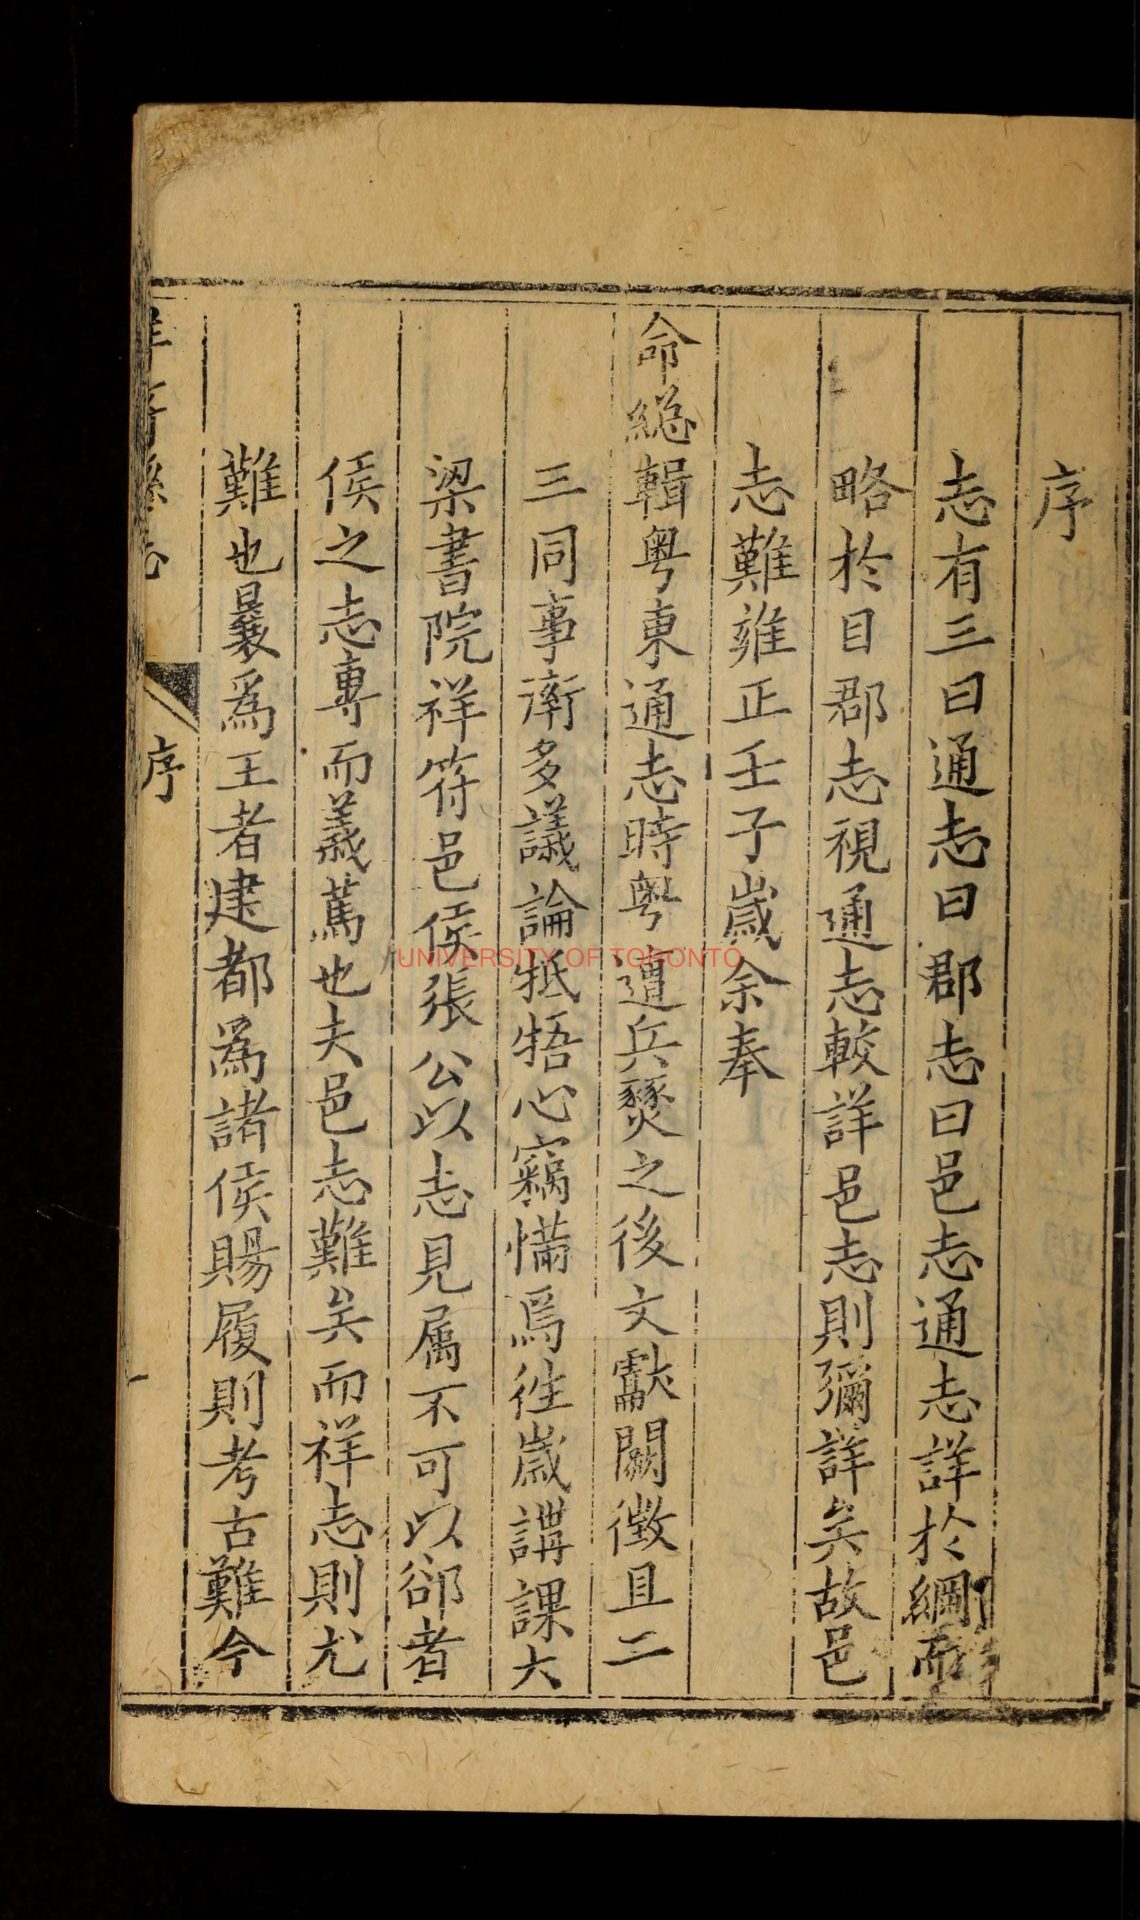 序
志有三曰通志曰郡志曰邑志通志詳於綱而
略於目郡志視通志較詳邑志則彌詳矣故邑
志難雍正壬子歲余奉
命緫輯粤東通志時粤遭兵燹之後文獻闕徵且二
三同事漸多議論牴牾心竊懣焉徃歲講課大
梁書院祥符邑侯張公以志見属不可以郤者
侯之志專而義篤也夫邑志難矣而祥志則尤
難也曩為王者建都為諸侯賜履則考古難今
祥符縣志
序
UNIVERSITY OF TORONTO